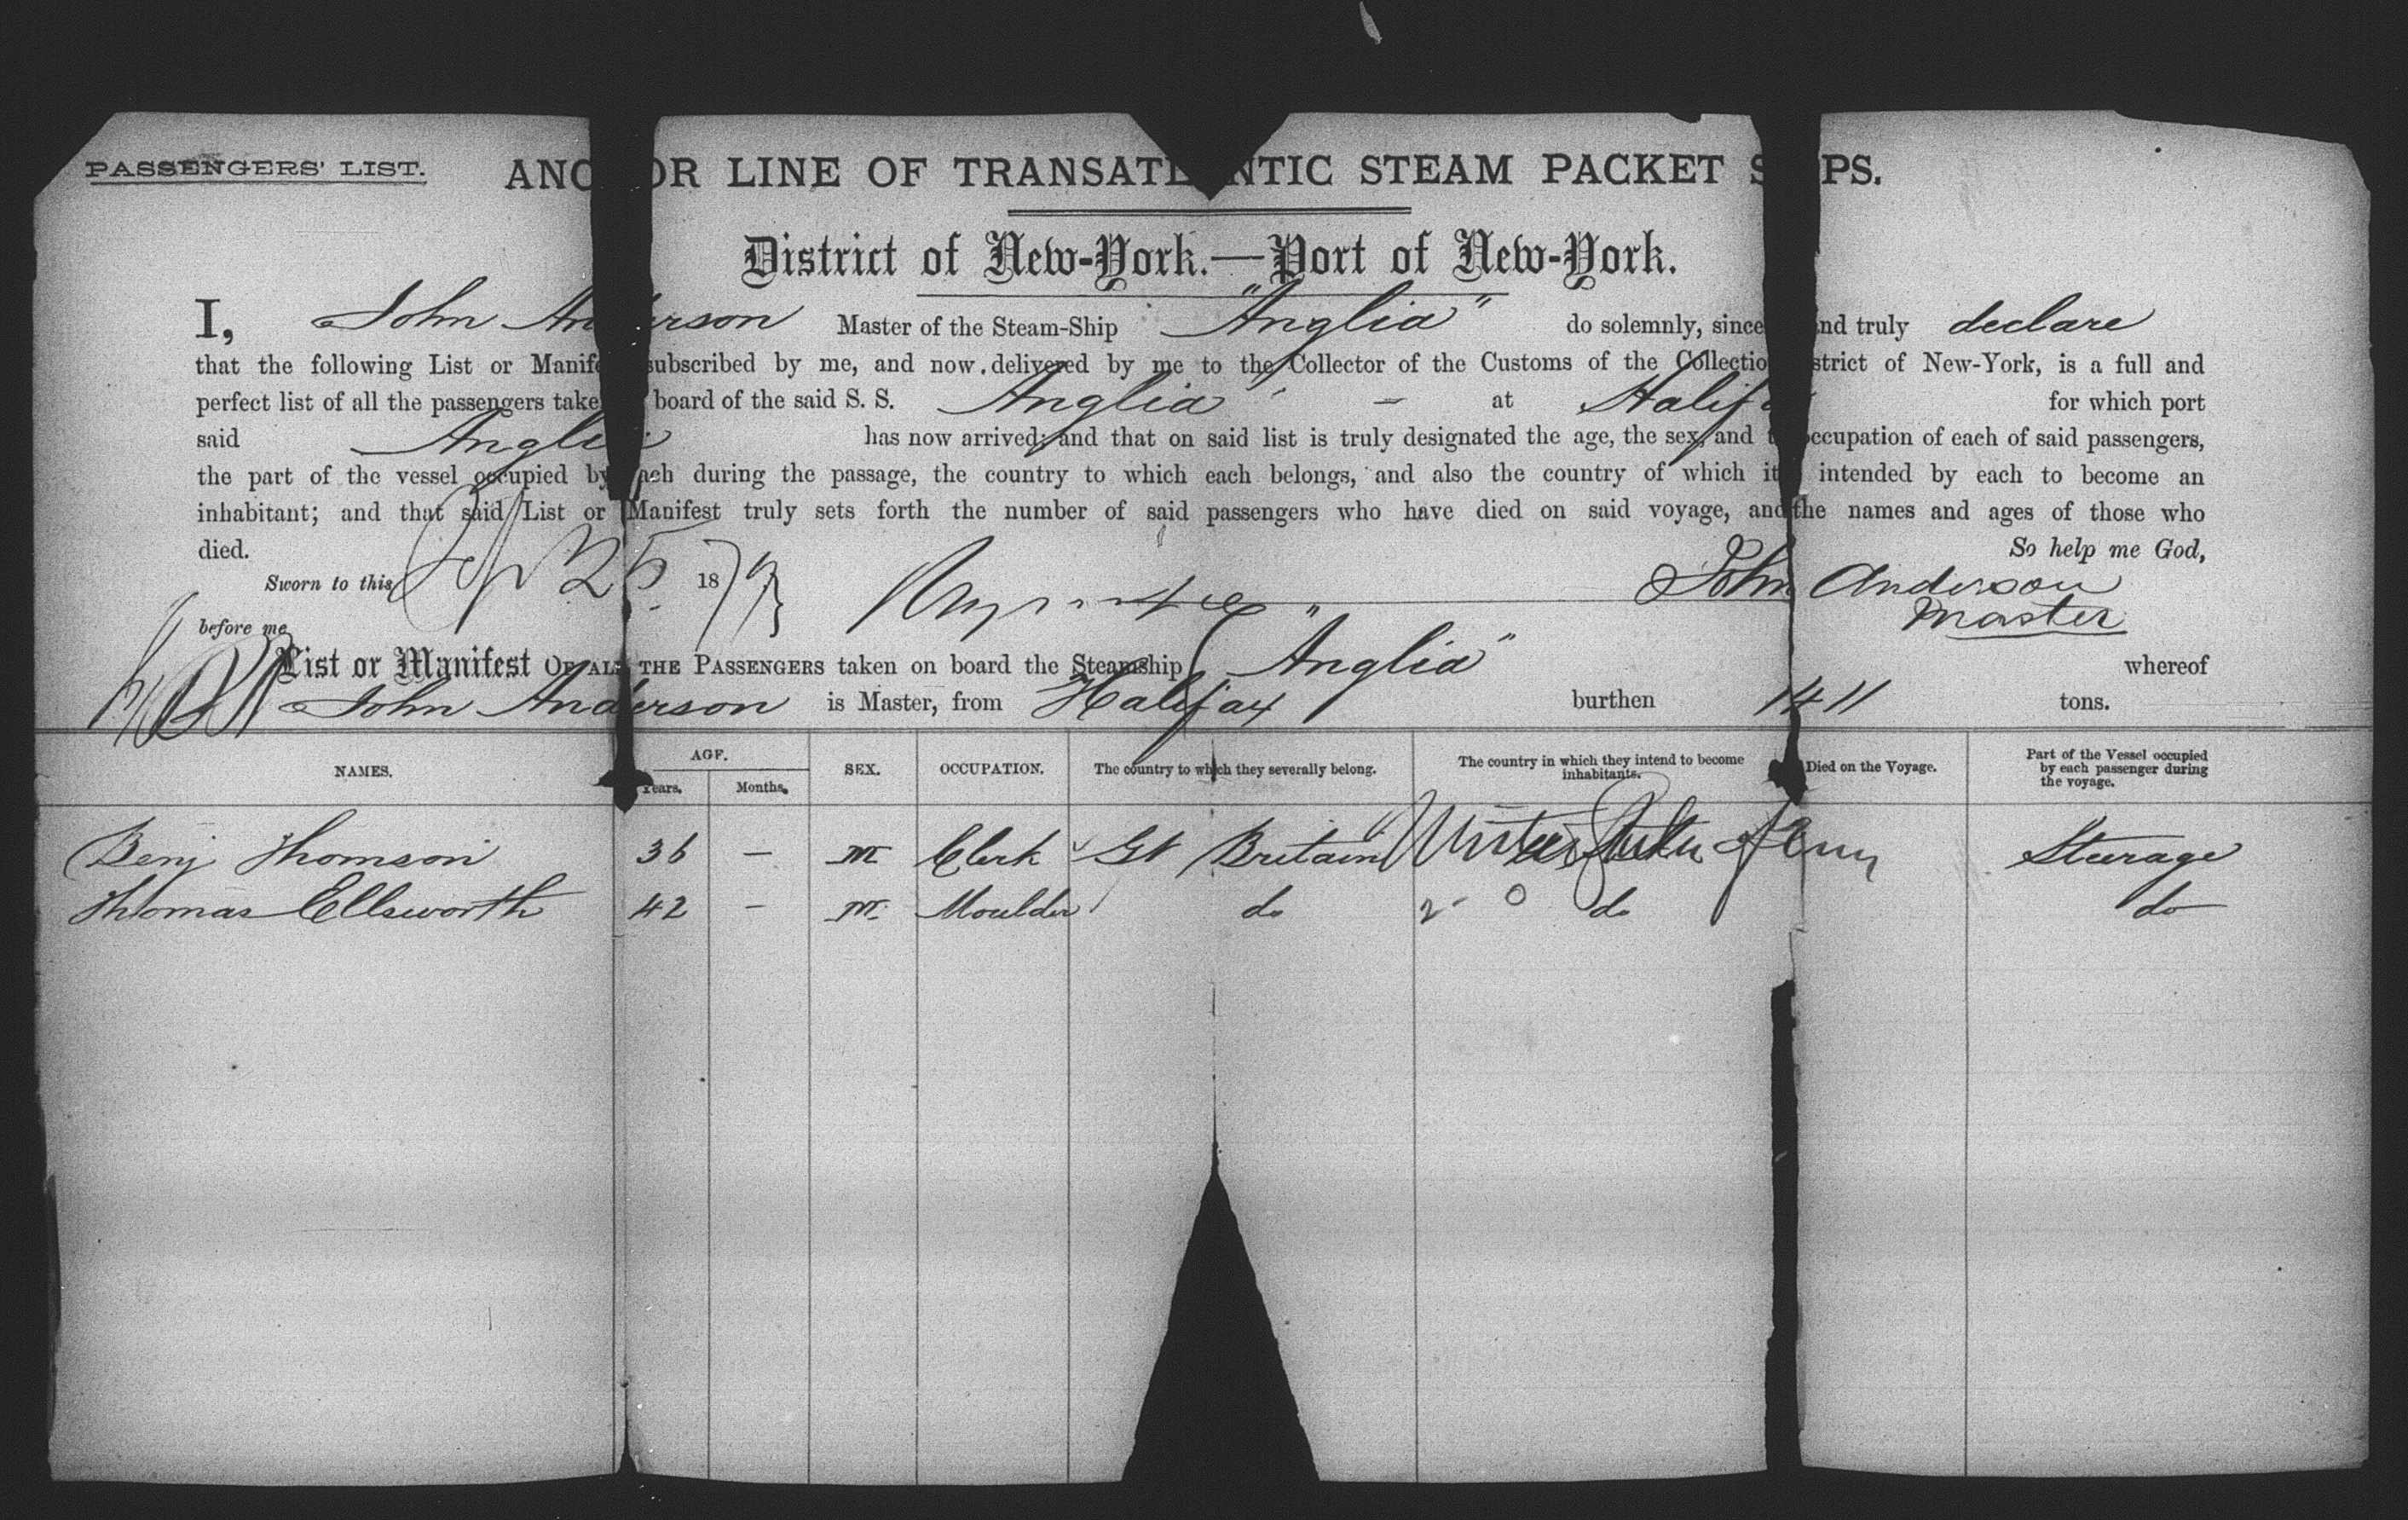 PASSENGERS' LIST. ANC OR LINE OF TRANSATL NTIC STEAM PACKET S PS.
District of New-York.—Port of New-York.
I, John An erson Master of the Steam-Ship "Anglia" do solemnly, since nd truly declare
that the following List or Manife subscribed by me, and now delivered by me to the Collector of the Customs of the Collectio strict of New-York, is a full and
perfect list of all the passengers take board of the said S. S. Anglia - at Halif for which port
said Angli has now arrived; and that on said list is truly designated the age, the sex, and t occupation of each of said passengers,
the part of the vessel occupied by ach during the passage, the country to which each belongs, and also the country of which it intended by each to become an
inhabitant; and that said List or Manifest truly sets forth the number of said passengers who have died on said voyage, and the names and ages of those who
died. So help me God,
Sworn to this 25 18 John Anderson
before me Master
List or Manifest OF ALL THE PASSENGERS taken on board the Steamship "Anglia" whereof
John Anderson is Master, from Halifax burthen 1411 tons.
NAMES. AGE. Years. Months. SEX. OCCUPATION. The country to which they severally belong. The country in which they intend to become inhabitants. Died on the Voyage. Part of the Vessel occupied by each passenger during the voyage.
Benj Thomson 36 — M Clerk Gt Britain Steerage
Thomas Ellsworth 42 - M. Moulder do 2 - 0 do do